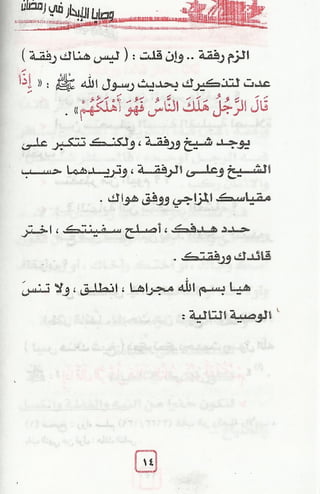 وصايا للإبحار في رمضان
الزم رفقة .. وإن قلت : ( ليس هناك رفقة )
عدت لتذكيرك بحديث رسول الله ﷺ : « إِذَا
قَالَ الرَّجُلُ هَلَكَ النَّاسُ فَهُوَ أَهْلَكُهُمْ» .
يوجد شيخ ورفقة ، ولكنك تتكبر على
الشيخ وعلى الرفقة ، وتريدهما حسب
مقياسك المزاجي ووفق هواك .
حدد هدفك ، أصلح سفينتك ، اختر
قائدك ورفقتك .
هيا بسم الله مجراها ، انطلق ، ولا تنسَ
الوصية التالية :
١٤